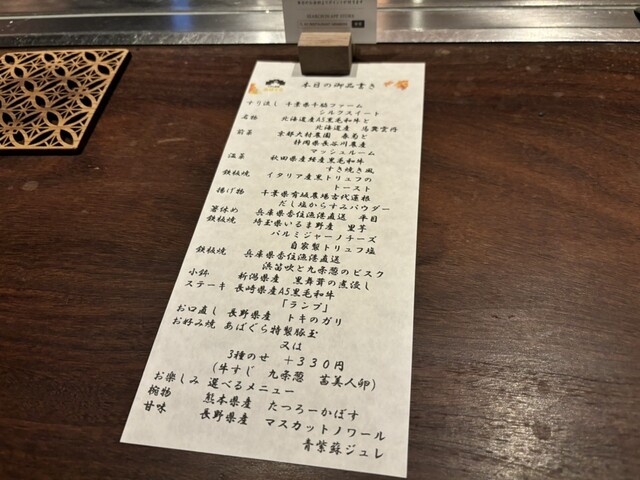 本日の御品書き
すり流し 千葉県千脇ファーム
シルクスイート
名物 北海道産A5黒毛和牛と
北海道産 馬糞雲丹
前菜 京都大村農園 春菊と
静岡県長谷川農産
マッシュルーム
温菜 秋田県産経産黒毛和牛
すき焼き風
鉄板焼 イタリア産黒トリュフの
トースト
揚げ物 千葉県育城農場古代蓮根
だし塩からすみパウダー
箸休め 兵庫県香住漁港直送 平目
鉄板焼 埼玉県いるま野産 里芋
パルミジャーノチーズ
自家製トリュフ塩
鉄板焼 兵庫県香住漁港直送
浜笛吹と九条葱のビスク
小鉢 新潟県産 黒舞茸の煮浸し
ステーキ 長崎県産A5黒毛和牛
「ランプ」
お口直し 長野県産 トキのガリ
お好み焼 あばぐら特製豚玉
又は
3種のせ +330円
(牛すじ 九条葱 茜美人卵)
お楽しみ 選べるメニュー
椀物 熊本県産 たつろーかぼす
甘味 長野県産 マスカットノワール
青紫蘇ジュレ